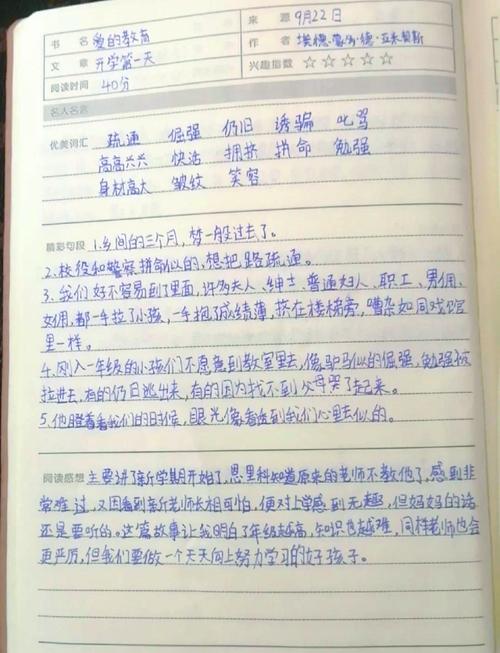 书 名 爱的教育 来 源 9月22日
文 章 开学第一天 作 者 埃德蒙多·德·亚米契斯
阅读时间 40分 兴趣指数 ☆☆☆☆☆
名人名言
优美词汇 疏通 倔强 仍旧 诱骗 叱骂
高高兴兴 快活 拥挤 拼命 勉强
身材高大 皱纹 笑容
精彩句段 1.乡间的三个月,梦一般过去了。
2.校役和警察拼命似的,想把路疏通。
3.我们好不容易到了里面,许多夫人、绅士、普通妇人、职工、男佣、
女佣,都一手拉了小孩,一手抱了成绩薄,挤在楼梯旁,嘈杂如同戏馆
里一样。
4.刚入一年级的小孩们不愿意到教室里去,像驴马似的倔强,勉强被
拉进去,有的仍旧逃出来,有的因为找不到父母哭了起来。
5.他瞪着看我们的时候,眼光像看透到我们心里去似的。
阅读感想 主要讲了新学期开始了,恩里科知道原来的老师不教他了,感到非
常难过,又因看到新老师长相可怕,便对上学感到无趣,但妈妈的话
还是要听的。这篇故事让我明白了年级越高,知识也越难,同样老师也会
更严厉,但我们要做一个天天向上努力学习的好孩子。